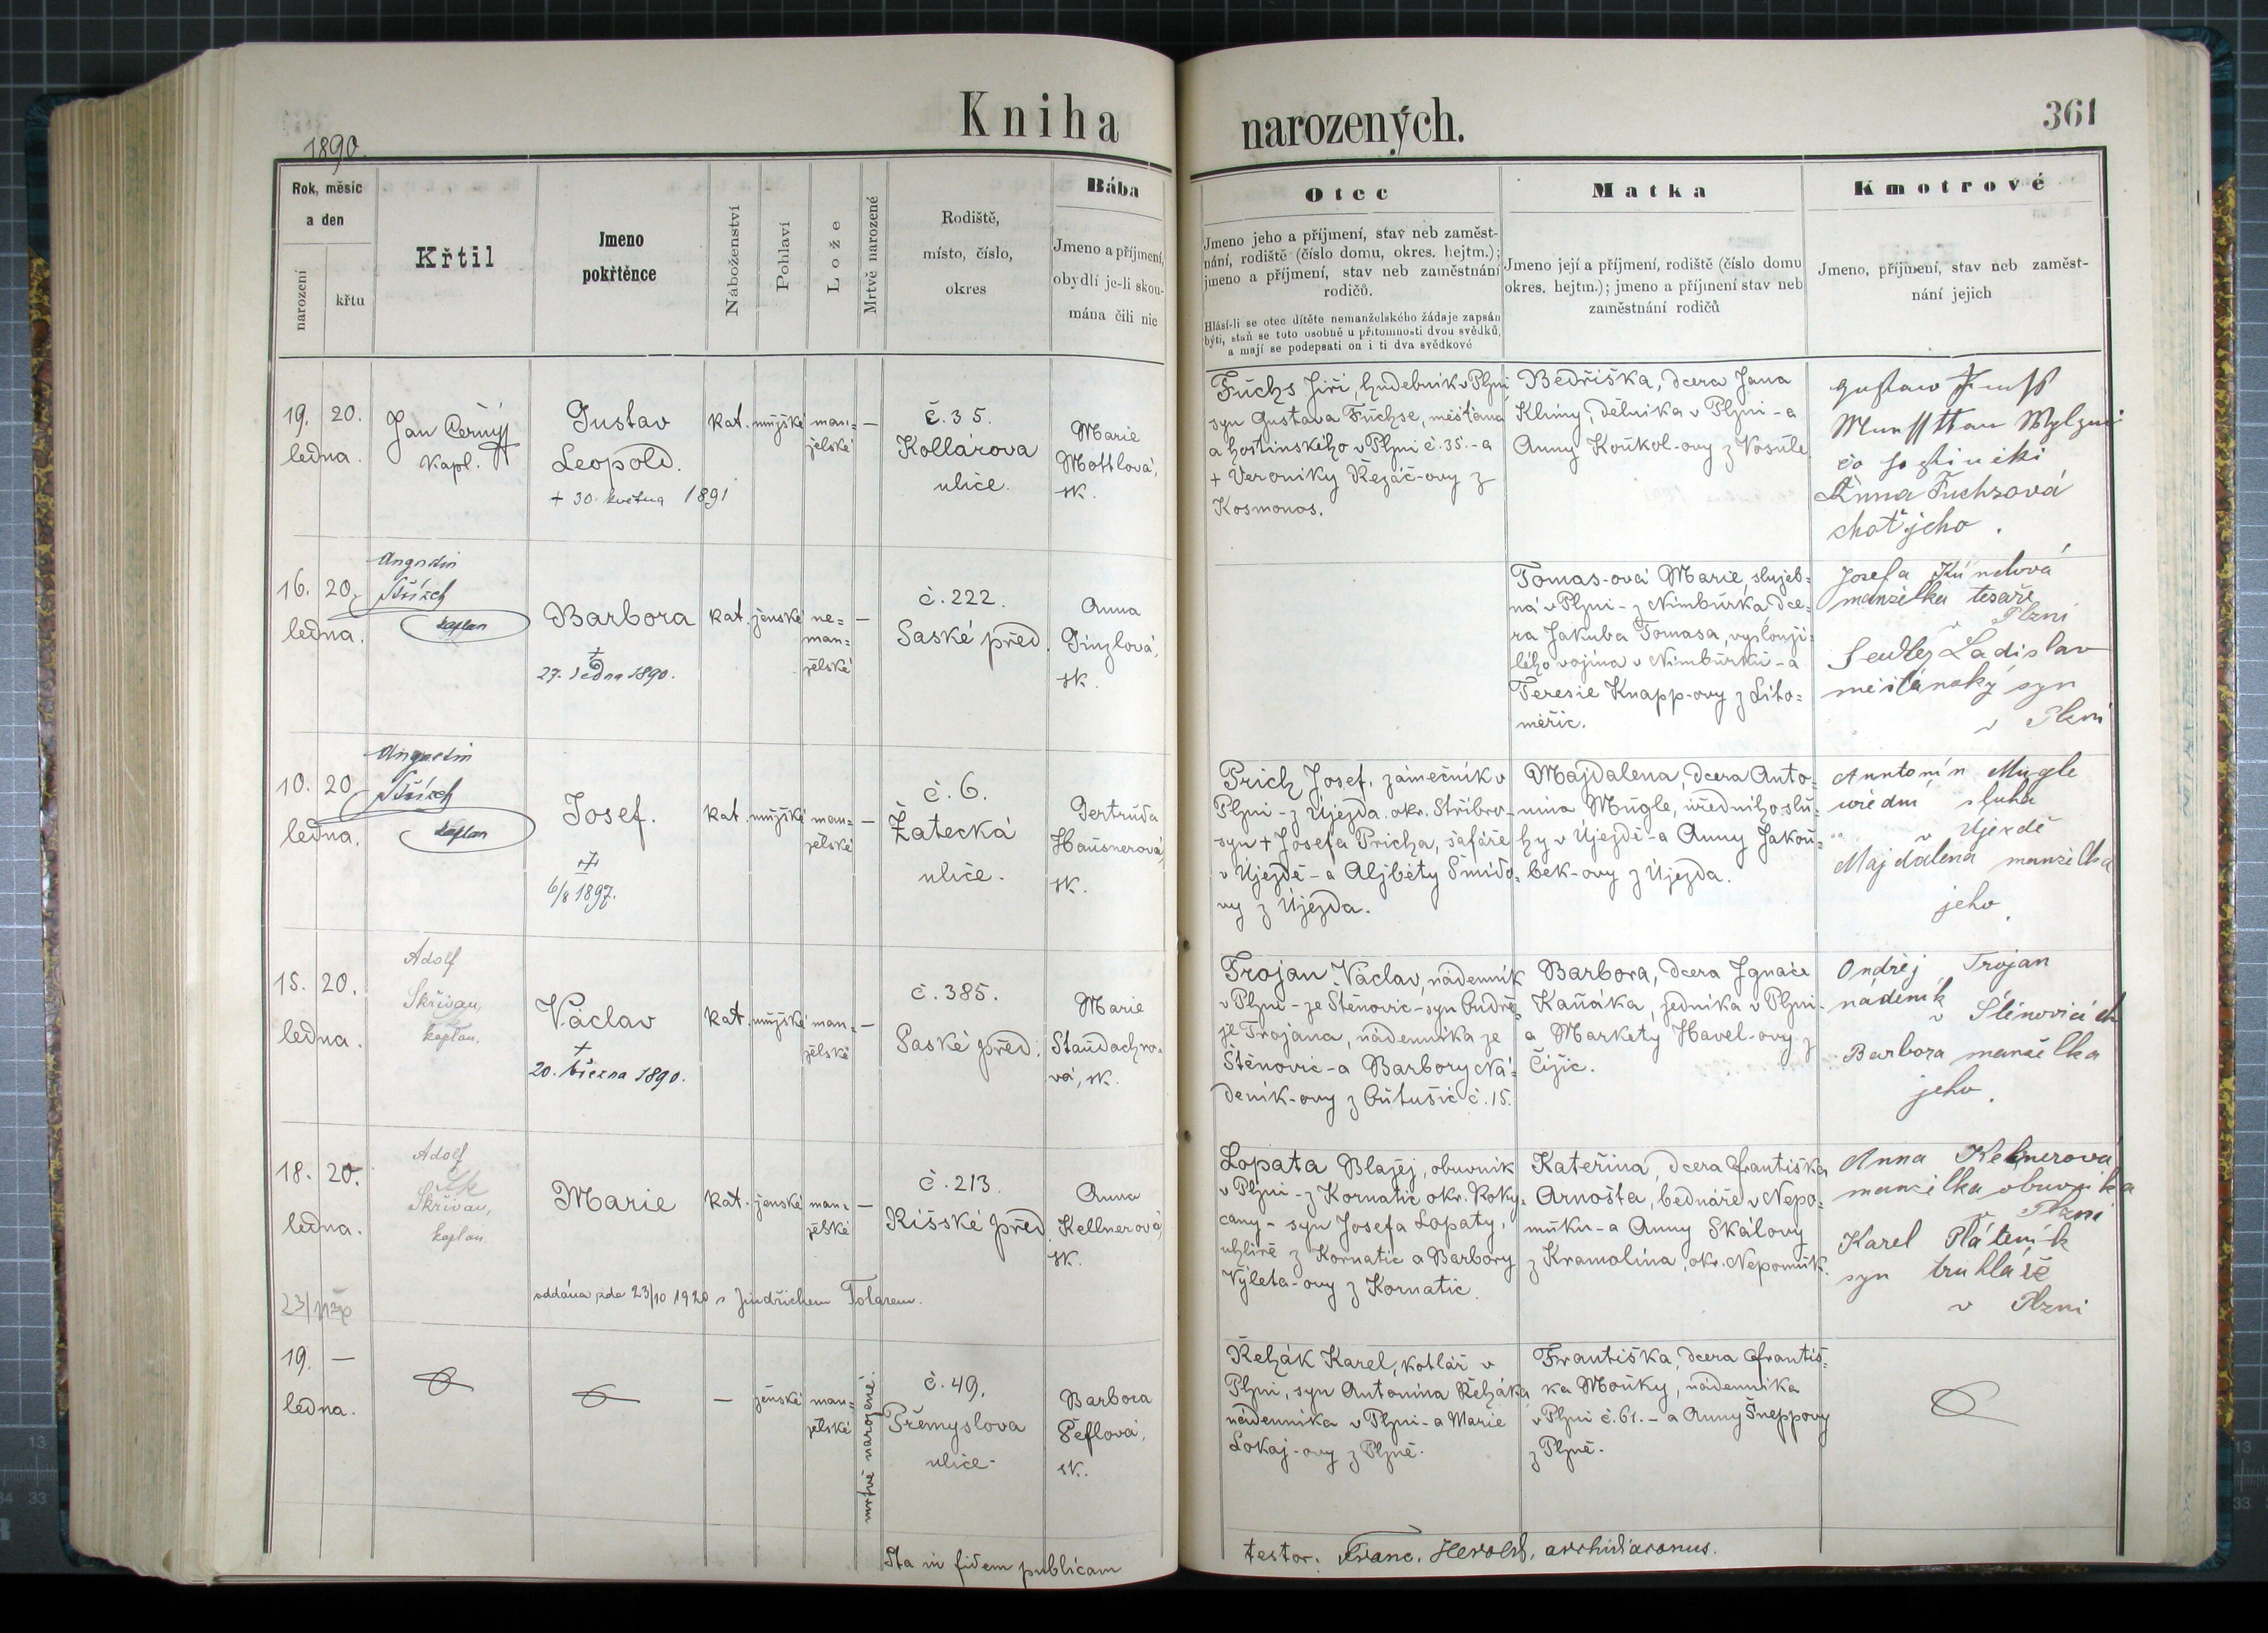 Kniha narozených.
361
1890.
Rok, měsíc
a den
narození
křtu
Křtil
Jmeno
pokřtěnce
Náboženství
Pohlaví
Lože
Mrtvě narozené
Rodiště,
místo, číslo,
okres
Bába
Jmeno a příjmení,
obydlí je-li skou-
mána čili nic
Otec
Jmeno jeho a příjmení, stav neb zaměst-
nání, rodiště (číslo domu, okres. hejtm.);
jmeno a příjmení, stav neb zaměstnání
rodičů.
Hlásí-li se otec dítěte nemanželského žádaje zapsán
býti, staň se toto osobně u přítomnosti dvou svědků,
a mají se podepsati on i ti dva svědkové
Matka
Jmeno její a příjmení, rodiště (číslo domu
okres. hejtm.); jmeno a příjmení stav neb
zaměstnání rodičů
Kmotrové
Jmeno, příjmení, stav neb zaměst-
nání jejich
19. 20.
ledna.
Jan Černý
kapl.
Gustav
Leopold.
+ 30. května 1891
kat.
mužské
man-
želské
—
č. 35.
Kollárova
ulice.
Marie
Mottlová,
zk.
Fuchs Jiří, hudebník v Plzni
syn Gustava Fuchse, měšťana
a hostinského v Plzni č. 35. - a
+ Veroniky Řezáč-ovy z
Kosmonos.
Bedřiška, dcera Jana
Klímy, dělníka v Plzni - a
Anny Koukol-ovy z Vosule
Gustaw
Anna Fuchsová
choť jeho.
16. 20.
ledna.
Augustin
kaplan
Barbora
+
27. ledna 1890.
kat.
ženské
ne-
man-
želské
—
č. 222.
Saské před.
Anna
Ginzlová,
zk.
Tomas-ová Marie, služeb-
ná v Plzni - z Nimburka dce-
ra Jakuba Tomasa, vyslouži-
lého vojína v Nimburku - a
Teresie Knapp-ovy z Lito-
měřic.
Josefa
manželka tesaře
v Plzni
Ladislav
měšťanský syn
v Plzni
10. 20.
ledna.
Augustin
kaplan
Josef.
+
6/8 1897.
kat.
mužské
man-
želské
—
č. 6.
Žatecká
ulice.
Gertruda
Hausnerová,
zk.
Prich Josef, zámečník v
Plzni - z Újezda. okr. Stříbro -
syn + Josefa Pricha, šafáře
v Újezdě - a Alžběty Šmído-
vy z Újezda.
Majdalena, dcera Anto-
nína Mugle, úředního slu-
hy v Újezdě - a Anny Jakou-
bek-ovy z Újezda.
Anntonín Mugle
úřední sluha
v Ujezdě
Majdalena manželka
jeho.
15. 20.
ledna.
Adolf
Skřivan,
kaplan.
Václav
+
20. března 1890.
kat.
mužské
man-
želské
—
č. 385.
Saské před.
Marie
Staudachro-
vá, zk.
Trojan Václav, nádenník
v Plzni - ze Štěnovic - syn Ondře-
je Trojana, nádenníka ze
Štěnovic - a Barbory Ná-
deník-ovy z Útušic č. 15.
Barbora, dcera Ignáce
Kaňáka, zedníka v Plzni -
a Markety Havel-ovy z
Čižic.
Ondřej Trojan
nádeník
v Štěnovicích
Barbora manželka
jeho.
18. 20.
ledna.
Adolf
Skřivan,
kaplan.
Marie
kat.
ženské
man-
želské
—
č. 213.
Říšské před.
Anna
Kellnerová,
zk.
oddána zde 23/10 1920 s Jindřichem Tolarem.
Lopata Blažej, obuvník
v Plzni - z Kornatic okr. Roky-
cany - syn Josefa Lopaty,
uhlíře z Kornatic a Barbory
Výleta-ovy z Kornatic.
Kateřina, dcera Františka
Arnošta, bednáře v Nepo-
muku - a Anny Skálovy
z Kramolína, okr. Nepomuk.
Anna Kelnerová
manželka obuvníka
v Plzni
Karel Pláteník
syn truhláře
v Plzni
19. —
ledna.
—
ženské
man-
želské
mrtvě narozené.
č. 49.
Přemyslova
ulice.
Barbora
Peflová,
zk.
Řehák Karel, kotlář v
Plzni, syn Antonína Řeháka
nádenníka v Plzni - a Marie
Lokaj-ovy z Plzně.
Františka, dcera Františ-
ka Mouky, nádenníka
v Plzni č. 61. - a Anny Šneppovy
z Plzně.
Ita in fidem publicam
testor. Franc. Herold, archidiaconus.